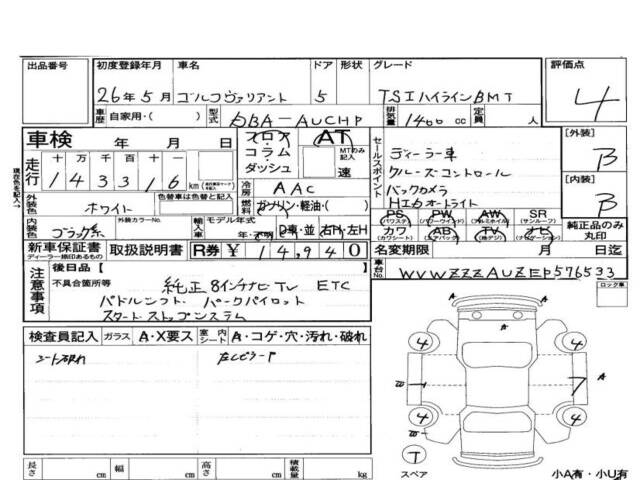 出品番号 初度登録年月 車名 ドア 形状 グレード 評価点
26年5月 ゴルフヴァリアント 5 TSIハイラインBMT 4
車歴 自家用・( ) 型式 DBA-AUCHP 排気量 1400 cc 定員 人
車検 年 月 日 フロア AT
コラム・ダッシュ MTのみ記入 速
走行 十万 万 千 百 十 一
1 4 3 3 1 6 km
冷房 AAC
外装色 ホワイト 色替車は色替と記入 燃料 ガソリン・軽油・( )
内装色 ブラック系 外装カラーNo. 輸入車 モデル年式 年・不明 D車・並 右H・左H
セールスポイント
ディーラー車
クルーズコントロール
バックカメラ
HIDオートライト
[外装] B
[内装] B
PS (パワステ) PW (パワーウインド) AW (アルミホイル) SR (サンルーフ)
カワ (カワシート) AB (エアバック) TV (地デジ) ナビ (ナビゲーション)
純正品のみ丸印
新車保証書 ディーラー捺印のあるもの 取扱説明書 R券 ¥ 14,940 名変期限 月 日迄
現在色を記入→
注意事項 後日品【
不具合箇所等 純正8インチナビ TV ETC
パドルシフト パークパイロット
スタートストップシステム
車台No. WVWZZZAUZEP576533
ロック車
検査員記入 ガラス A・X要ス 室内シート A・コゲ・穴・汚れ・破れ
A
4 4
A
7
4 4
A
T
スペア
小A有・小U有
長さ cm 幅 cm 高さ cm 積載量 kg